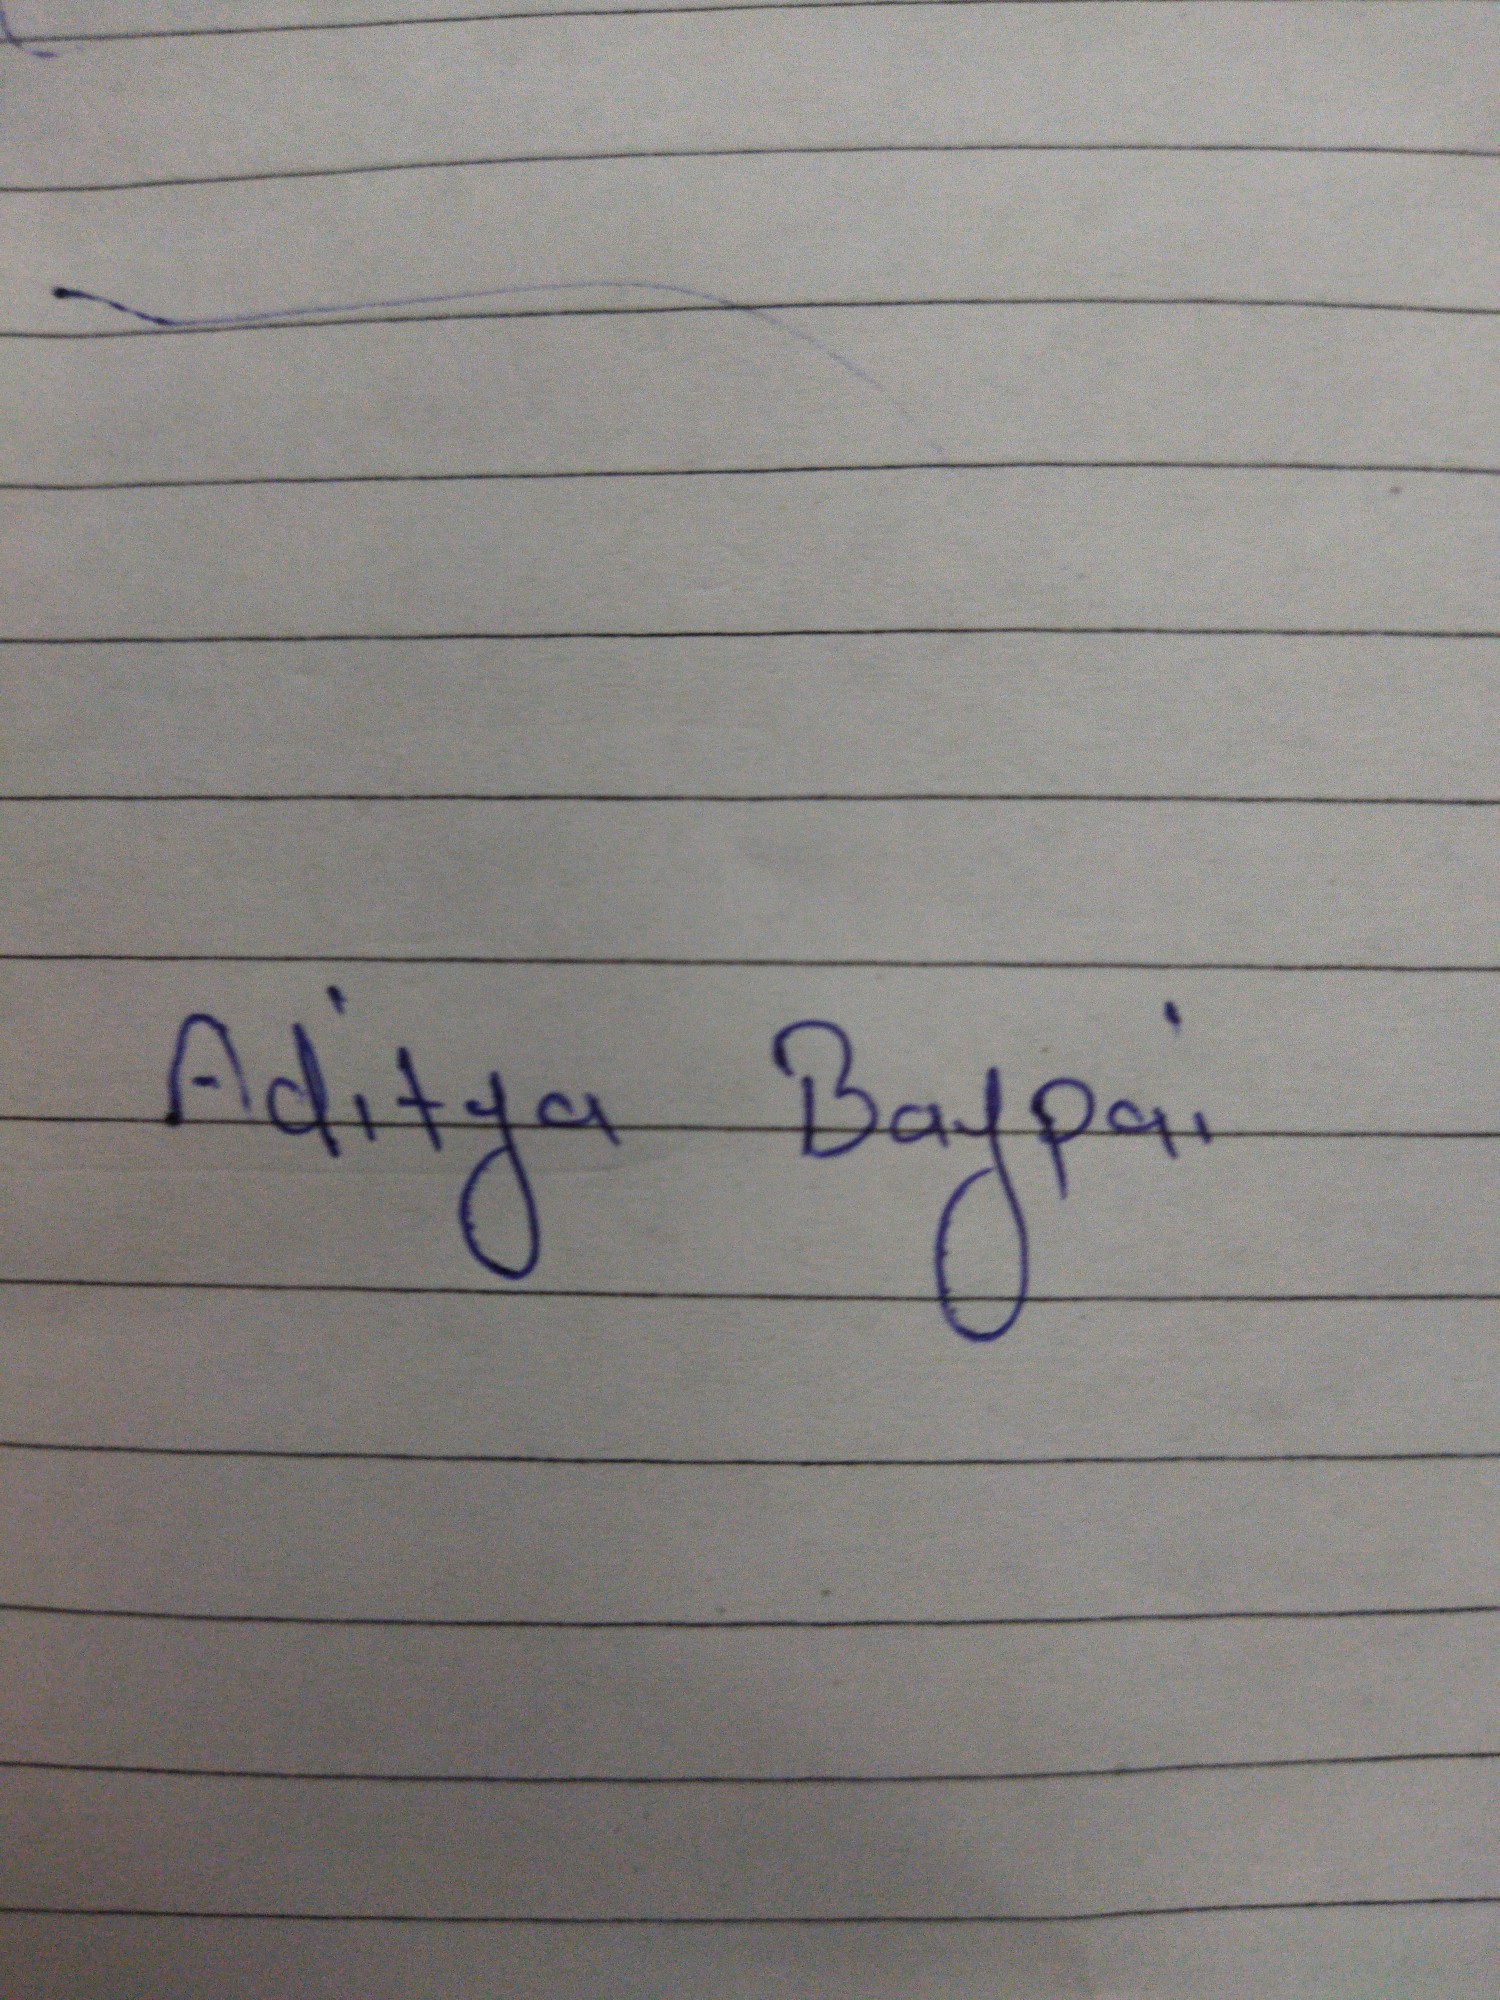 Aditya Bajpai